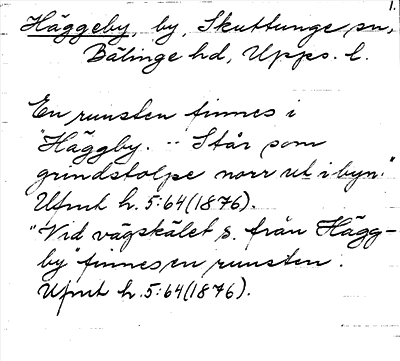 1.
Häggeby, by, Skuttunge sn,
Bälinge hd, Upps. l.
En runsten finnes i
"Häggby. -- Står som
grindstolpe norr ut i byn."
Ufmt h. 5:64 (1876).
"Vid vägskälet s. från Hägg-
by" finnes en runsten.
Ufmt h. 5:64 (1876).